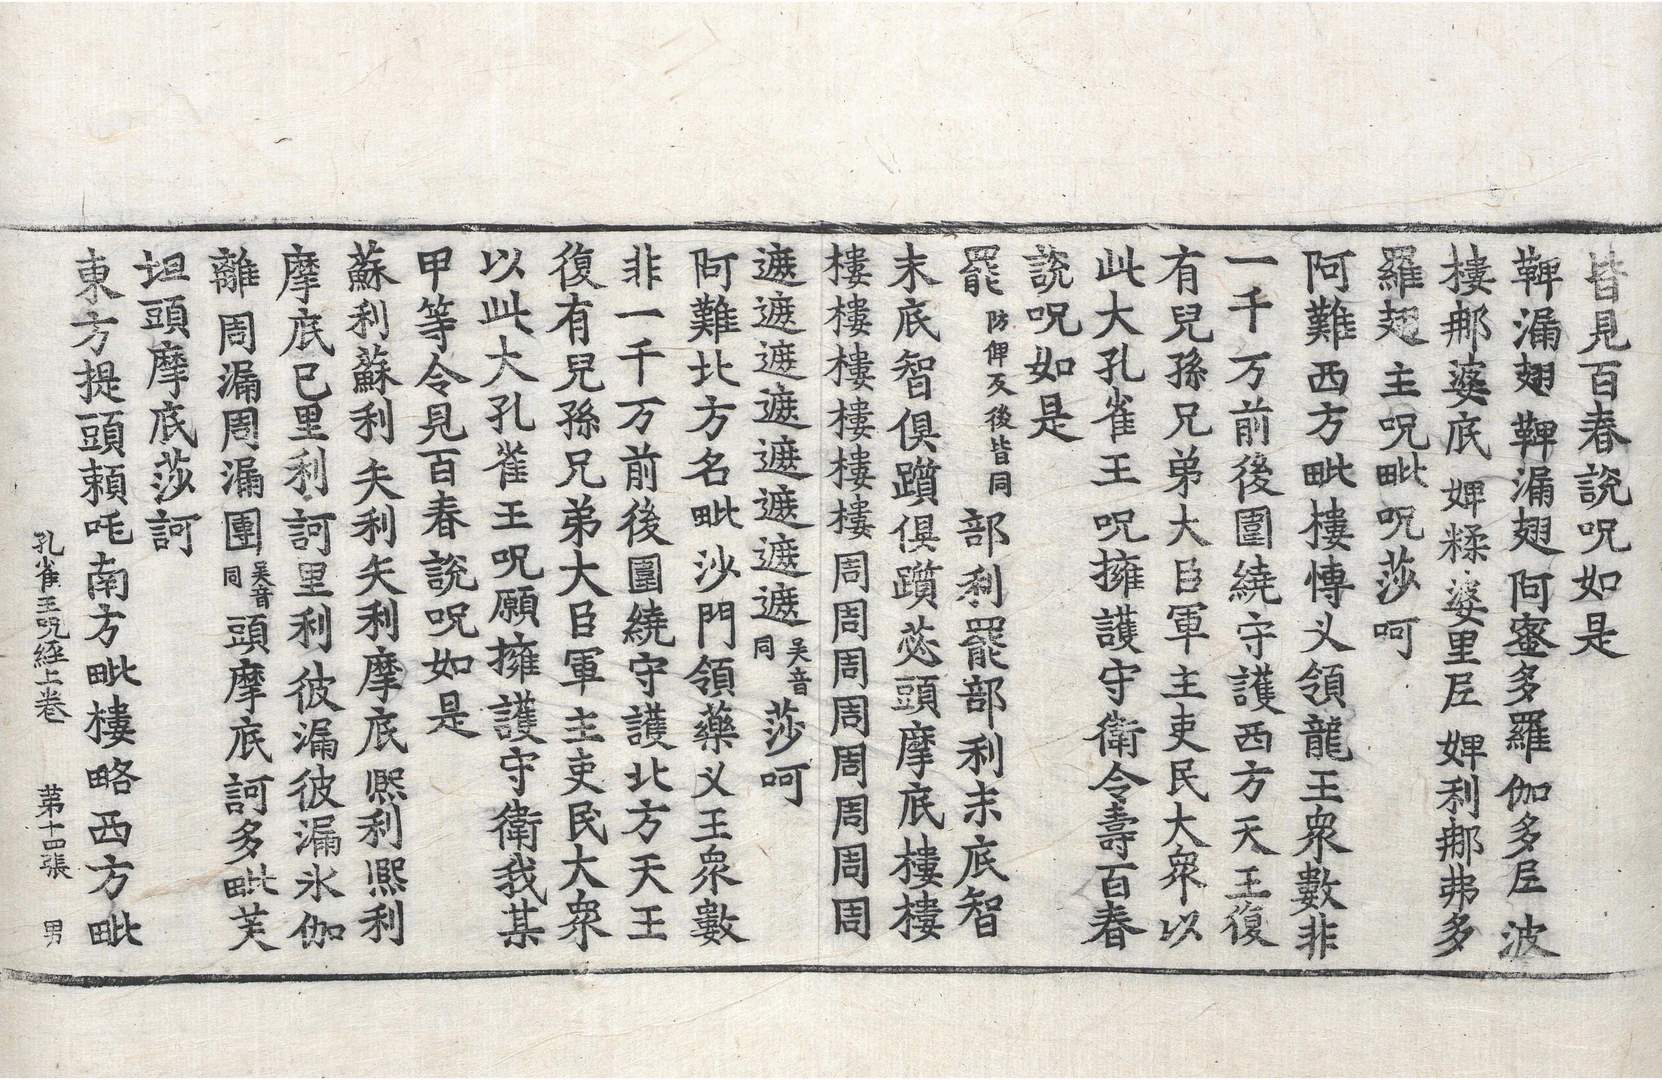 皆見百春說呪如是
鞞漏翅鞞漏翅阿蜜多羅伽多𡰱波
樓那婆底婢糅婆里𡰱婢利那弗多
羅翅主呪毗呪莎呵
阿難西方毗樓愽义領龍王衆數非
一千万前後圍繞守護西方天王復
有兒孫兄弟大臣軍主吏民大衆以
此大孔雀王呪擁護守衛令壽百春
說呪如是
罷防俾反後皆同部利罷部利末底智
末底智俱躓俱躓苾頭摩底樓樓
樓樓樓樓樓樓周周周周周周周周
遮遮遮遮遮遮遮遮吳音同莎呵
阿難北方名毗沙門領藥义王衆數
非一千万前後圍繞守護北方天王
復有兒孫兄弟大臣軍主吏民大衆
以此大孔雀王呪願擁護守衛我某
甲等令見百春說呪如是
蘇利蘇利矢利矢利摩底熈利熈利
摩底巳里利訶里利彼漏彼漏氷伽
離周漏周漏團吳音同頭摩底訶多毗芙
坦頭摩底莎訶
東方提頭頼吒南方毗樓略西方毗
孔雀王呪経上卷 第十四張 男